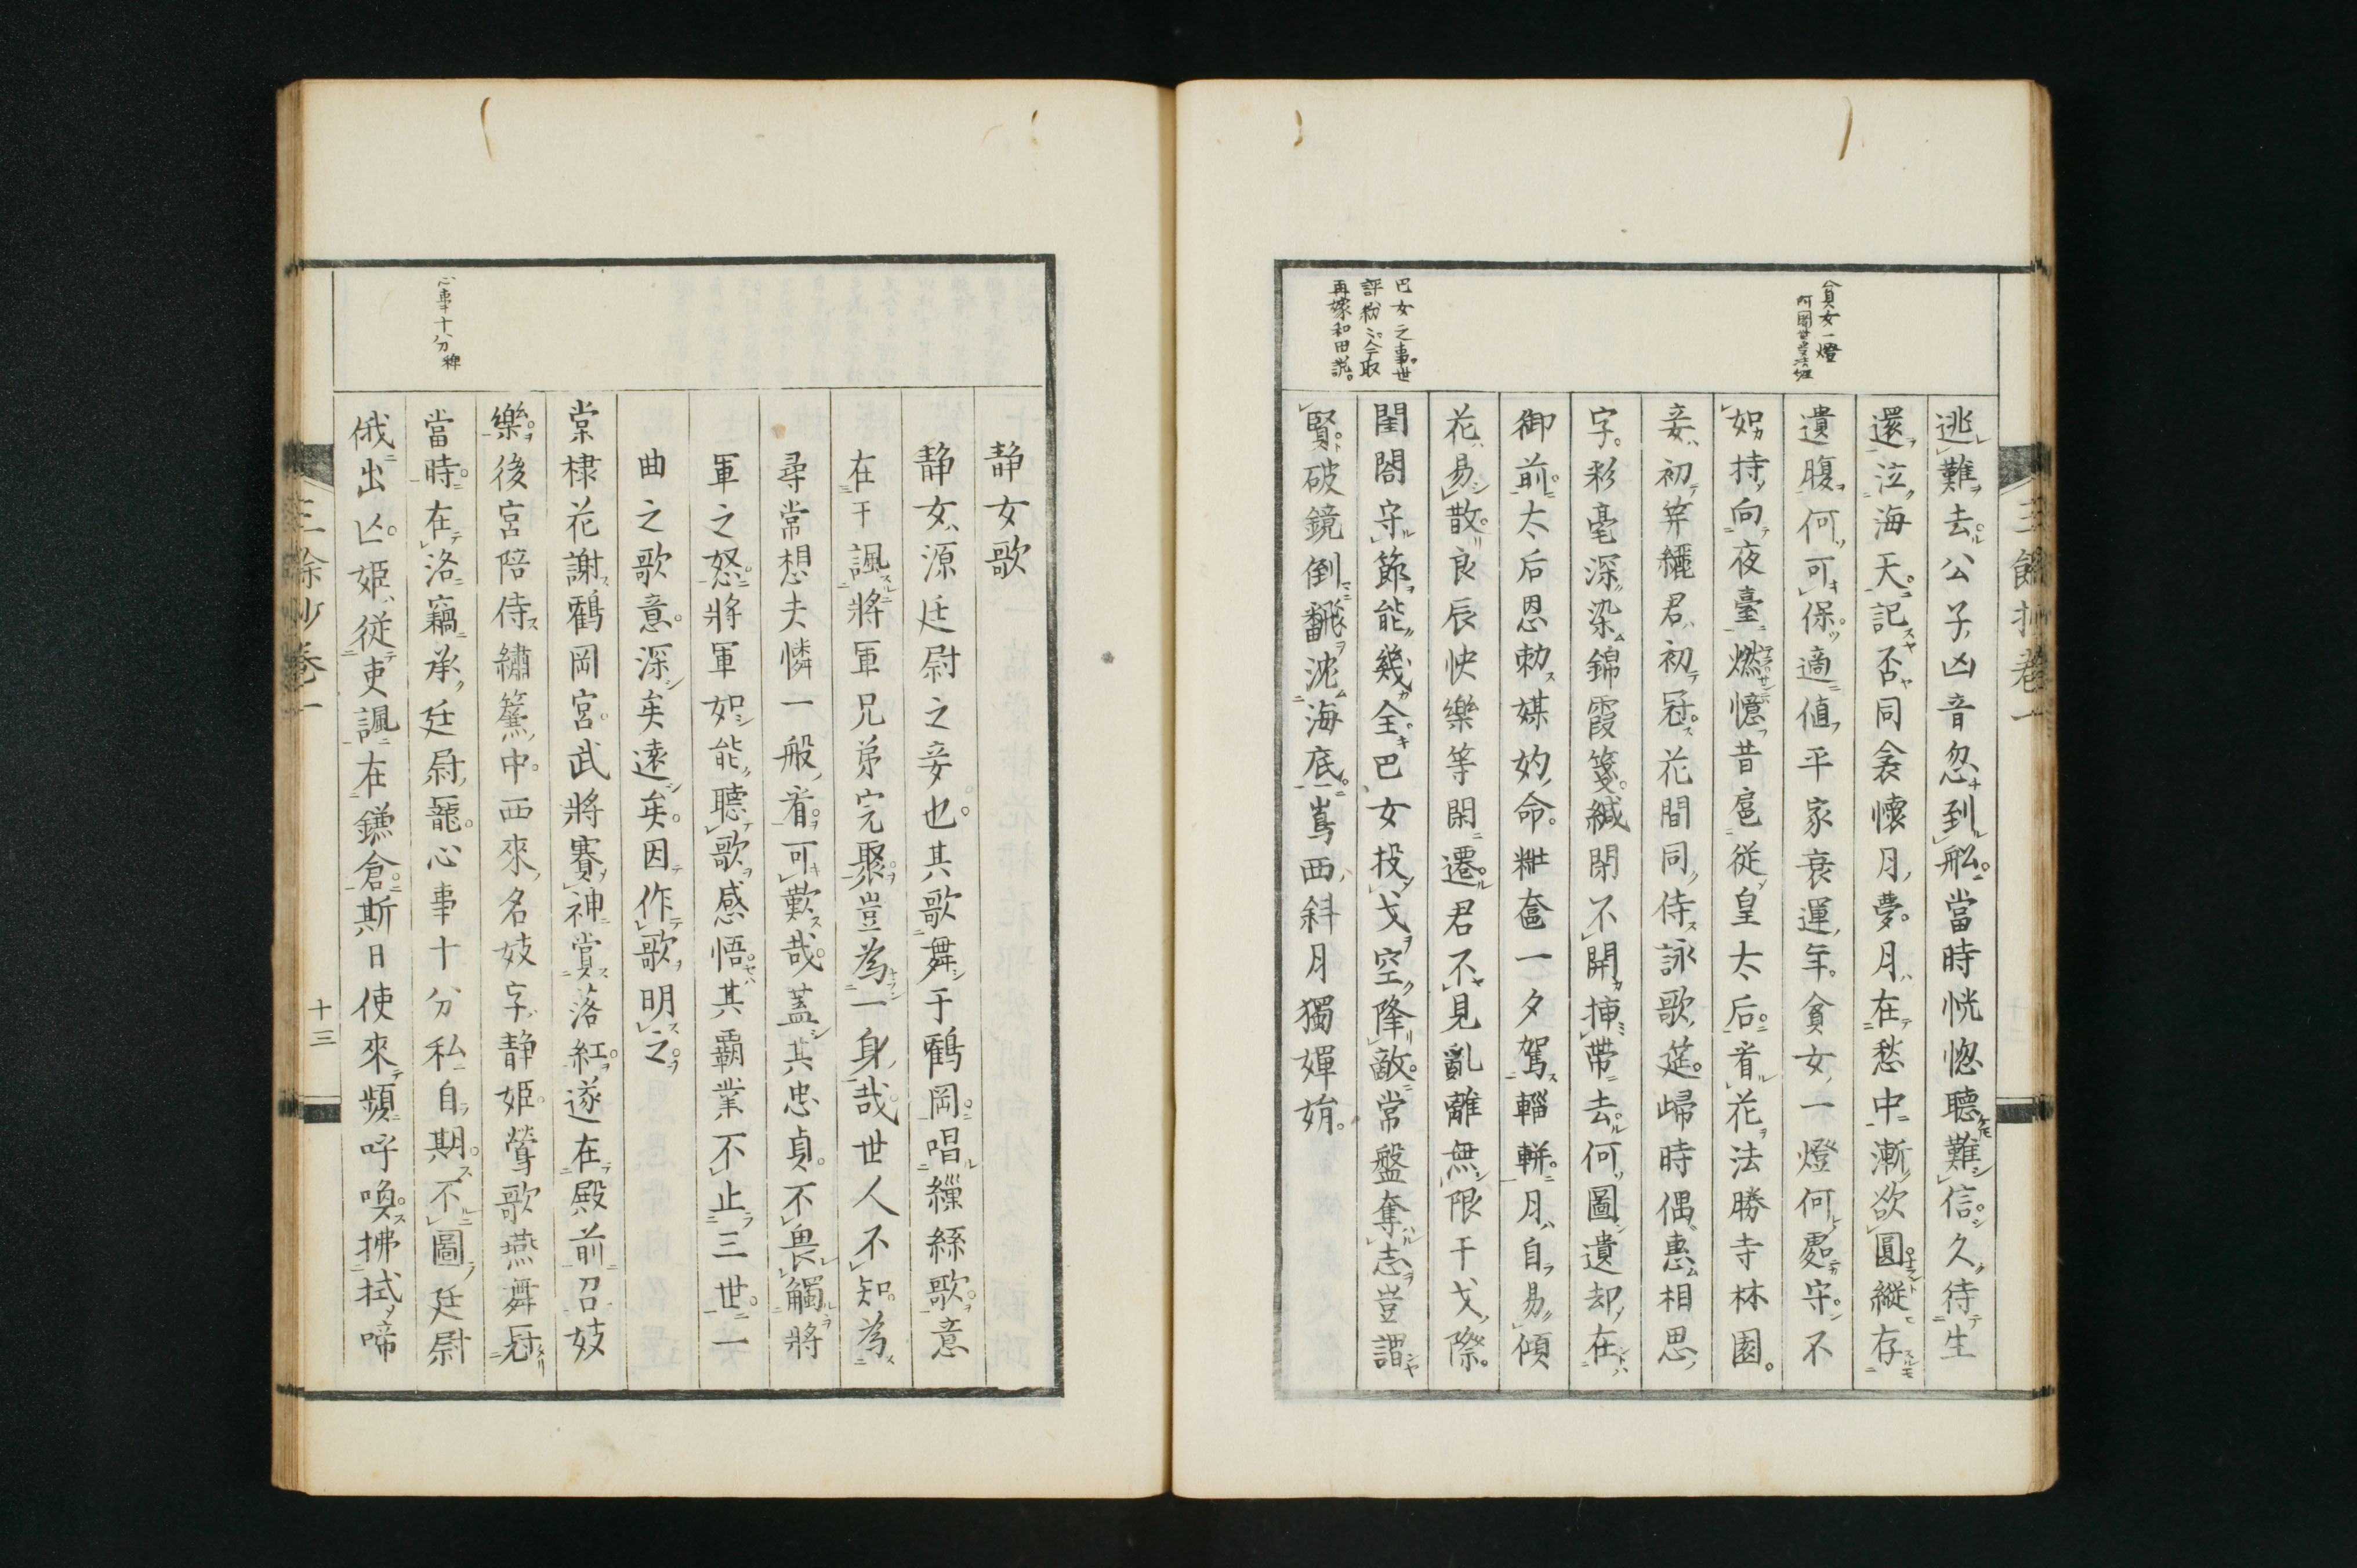 貧女一燈
逃難去公子凶音忽到舩當時恍惚聽難信久待生
還泣海天記否同衾懷月夢月在愁中漸欲圓縱存
遺腹何可保適値平家衰運年貧女一燈何處守不
如持向夜臺燃憶昔扈從皇太后看花法勝寺林園
妾初笄纚君初冠花間同侍詠歌筵歸時偶惠相思
字彩毫深染錦霞箋緘閉不開挿帶去何圖遺却在
御前太后恩勅媒妁命粧奩一夕駕輜軿月自易傾
花易散良辰快樂等閑遷君不見亂離無限干戈際
巴女之事世
再嫁和田説
閨閤守節能幾全巴女投戈空降敵常盤奪志豈謂
賢破鏡倒翻沈海底蔦西斜月獨嬋娟
三餘抄卷一
静女歌
静女源廷尉之妾也其歌舞于鶴岡唱繅絲歌意
在干諷將軍兄弟完聚豈為一身哉世人不知為
尋常想夫憐一般看可歎哉蓋其忠貞不畏觸將
軍之怒將軍如能聽歌感悟其覇業不止三世一
曲之歌意深矣遠矣因作歌明之
棠棣花謝鶴岡宮武將賽神賞落紅遂在殿前召妓
樂後宮陪侍繡簾中西來名妓字静姫鶯歌燕舞冠
心事十分
當時在洛竊承廷尉寵心事十分私自期不圖廷尉
俄出亡姫從吏諷在鎌倉斯日使來頻呼喚拂拭啼
三餘抄卷一
十三